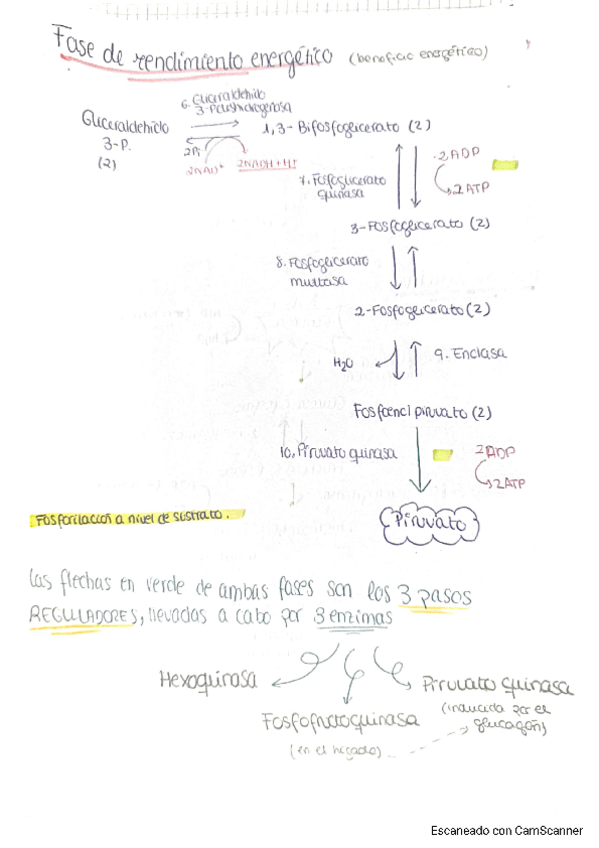 Fase de rendimiento energético (beneficio energético)
6. Gliceraldehido
3-P deshidrogenasa
Gliceraldehido
3-P.
(2)
1,3-Bifosfoglicerato (2)
2Pi
2NAD+
2NADH+H+
2ADP
2ATP
7. Fosfoglicerato
quinasa
3-Fosfoglicerato (2)
8. Fosfoglicerato
mutasa
2-Fosfoglicerato (2)
H2O
9. Enolasa
Fosfoenol piruvato (2)
10. Piruvato quinasa
2ADP
2ATP
Fosforilación a nivel de sustrato.
Piruvato
Las flechas en verde de ambas fases son los 3 pasos
REGULADORES, llevadas a cabo por 3 enzimas
Hexoquinasa
Piruvato quinasa
(inducida por el
glucagón)
Fosfofructoquinasa
(en el hígado)
Escaneado con CamScanner